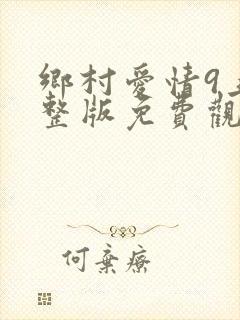 鄉村愛情9
整版免費觀
何棄療